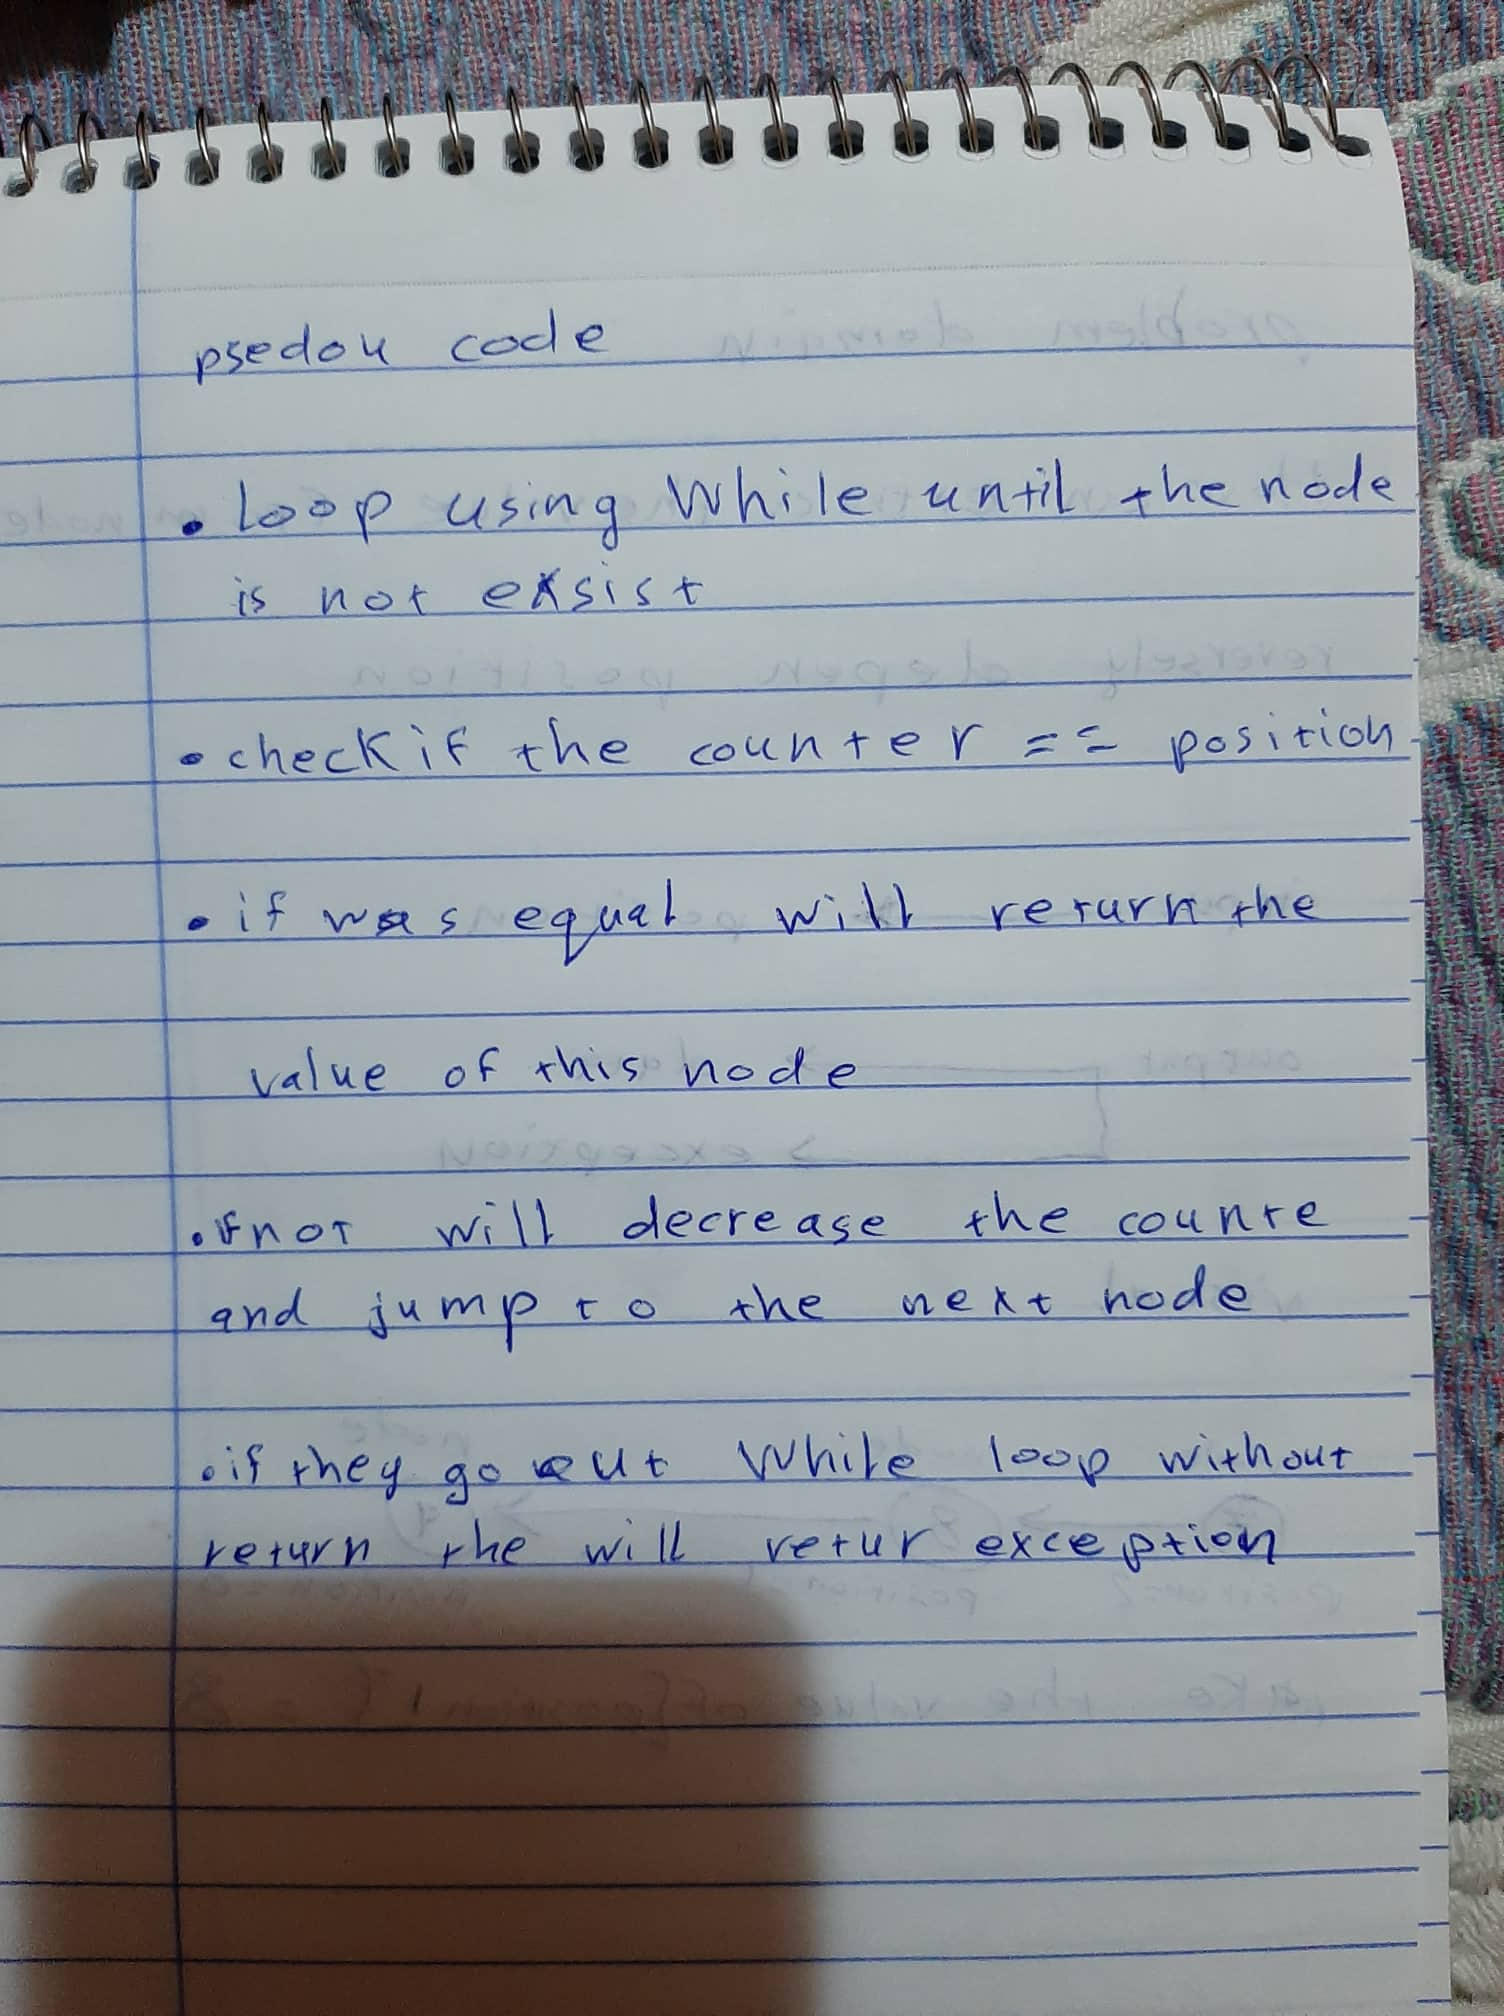 psedou code
• loop using While until the node
is not exsist
• check if the counter == position
• if was equal will return the
value of this node
• if not will decrease the counte
and jump to the next node
• if they go out While loop without
return the will retur exception